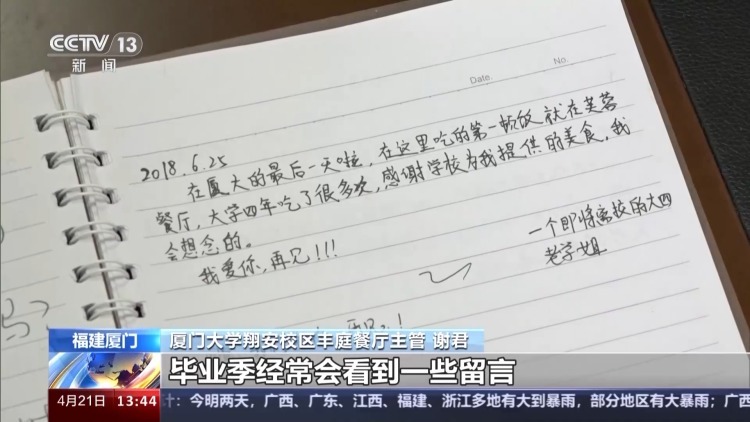 CCTV 13
新闻
Date.
No.
2018.6.25
在厦大的最后一天啦，在这里吃的第一顿饭就在芙蓉
餐厅，大学四年吃了很多次，感谢学校为我提供的美食，我
会想念的。
我爱你，再见!!!
一个即将离校的大四
老学姐
福建厦门
厦门大学翔安校区丰庭餐厅主管 谢君
毕业季经常会看到一些留言
4月21日 13:44
计：今明两天，广西、广东、江西、福建、浙江多地有大到暴雨，部分地区有大暴雨；广西